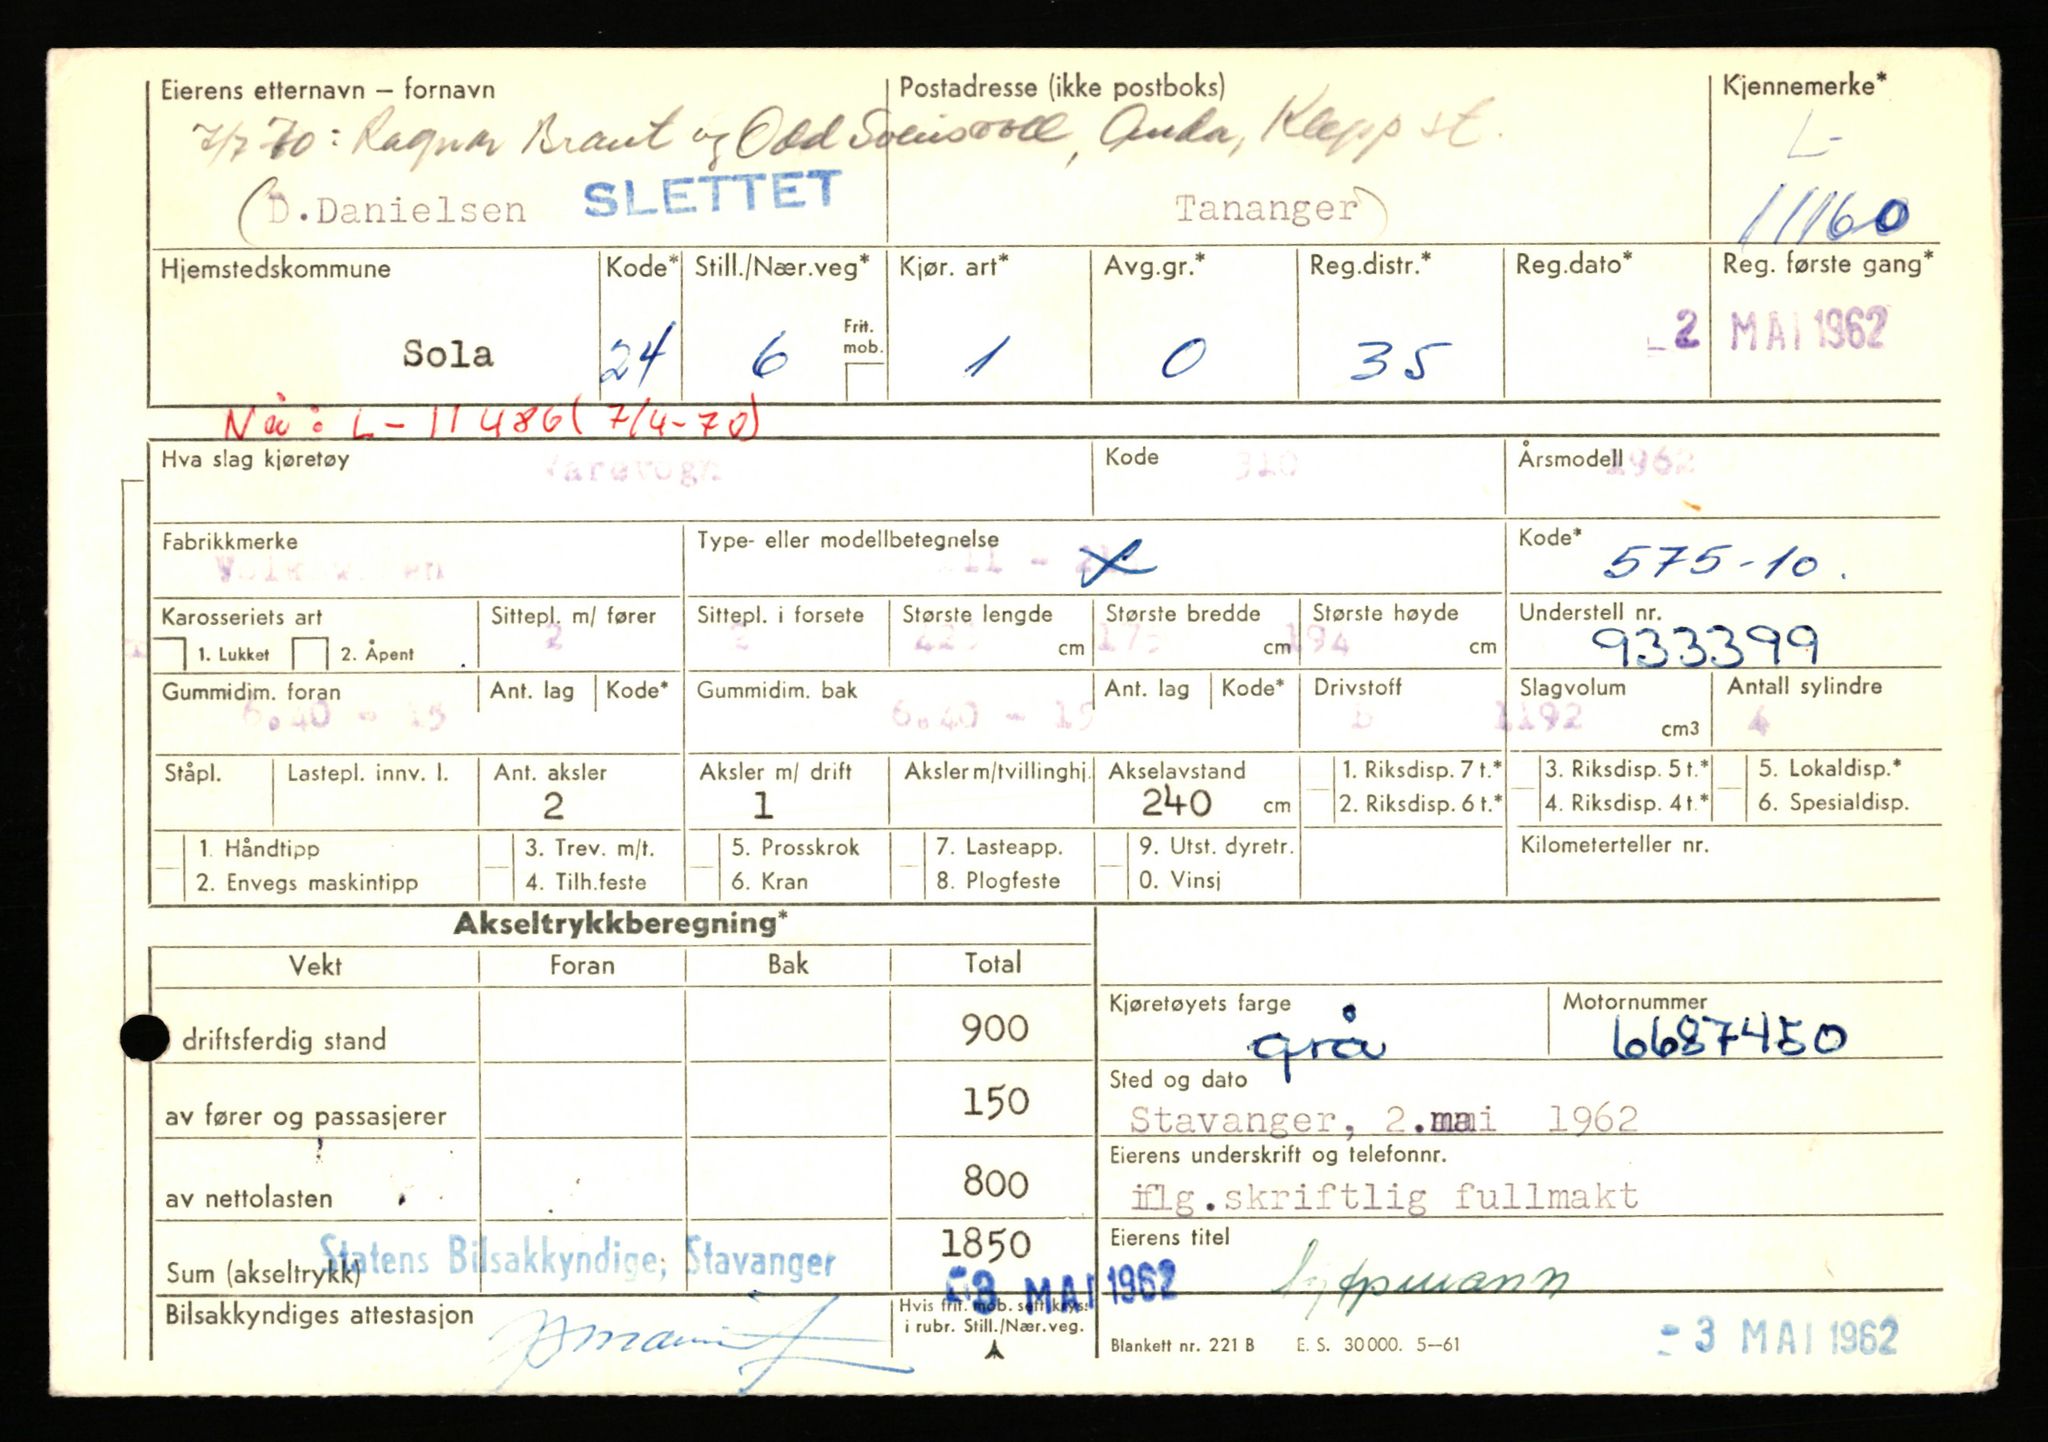 Eierens etternavn – fornavn Postadresse (ikke postboks) Kjennemerke*
7/7 70: Ragnar Braut og Odd Svensvoll, Anda, Klepp st. L-
(D.Danielsen SLETTET Tananger) 11160
Hjemstedskommune Kode* Still./Nær.veg* Kjør. art* Avg.gr.* Reg.distr.* Reg.dato* Reg. første gang*
Frit. mob.
Sola 24 6 1 0 35 -2 MAI 1962
Nå: L-11486 (7/4-70)
Hva slag kjøretøy Varevogn Kode 310 Årsmodell 1962
Fabrikkmerke Type- eller modellbetegnelse Kode*
Volkswagen 575-10.
Karosseriets art Sittepl. m/ fører Sittepl. i forsete Største lengde Største bredde Største høyde Understell nr.
1. Lukket 2. Åpent 2 2 cm cm 194 cm 933399
Gummidim. foran Ant. lag Kode* Gummidim. bak Ant. lag Kode* Drivstoff Slagvolum Antall sylindre
6.40 - 15 6.40 - 15 b 1192 cm3 4
Ståpl. Lastepl. innv. l. Ant. aksler Aksler m/ drift Aksler m/tvillinghj. Akselavstand 1. Riksdisp. 7 t.* 3. Riksdisp. 5 t.* 5. Lokaldisp.*
2 1 240 cm 2. Riksdisp. 6 t.* 4. Riksdisp. 4 t.* 6. Spesialdisp.
1. Håndtipp 3. Trev. m/t. 5. Prosskrok 7. Lasteapp. 9. Utst. dyretr. Kilometerteller nr.
2. Envegs maskintipp 4. Tilh.feste 6. Kran 8. Plogfeste 0. Vinsj
Akseltrykkberegning*
Vekt Foran Bak Total
driftsferdig stand 900
Kjøretøyets farge Motornummer
grå 6687450
av fører og passasjerer 150
Sted og dato
Stavanger, 2.mai 1962
av nettolasten 800
Eierens underskrift og telefonnr.
iflg.skriftlig fullmakt
Sum (akseltrykk) 1850
Statens Bilsakkyndige, Stavanger
Eierens titel
-3 MAI 1962
Bilsakkyndiges attestasjon
Hvis frit. mob. sett kryss
i rubr. Still./Nær.veg.
Blankett nr. 221 B E. S. 30000. 5–61
-3 MAI 1962